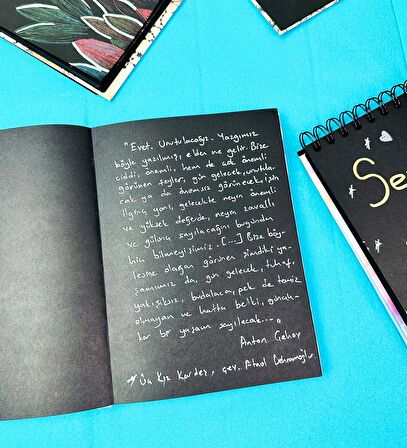 "Evet. Unutulacağız. Yazgımız
böyle yazılmış, elden ne gelir. Bize
ciddi, önemli, hem de çok önemli
görünen şeyler, gün gelecek, unutula-
cak ya da önemsiz görünecek. İşin
ilginç yanı, gelecekte neyin önemli
ve yüksek değerde, neyin zavallı
ve gülünç sayılacağını bugünden
hiç bilmeyişimiz. [...] Bize böy-
lesine olağan görünen şimdiki ya-
şamımız da, gün gelecek, tuhaf,
yakışıksız, budalaca, pek de temiz
olmayan ve hatta belki, günah-
kar bir yaşam sayılacak...
Anton Çehov
Üç Kız Kardeş, çev. Ataol Behramoğlu
Se